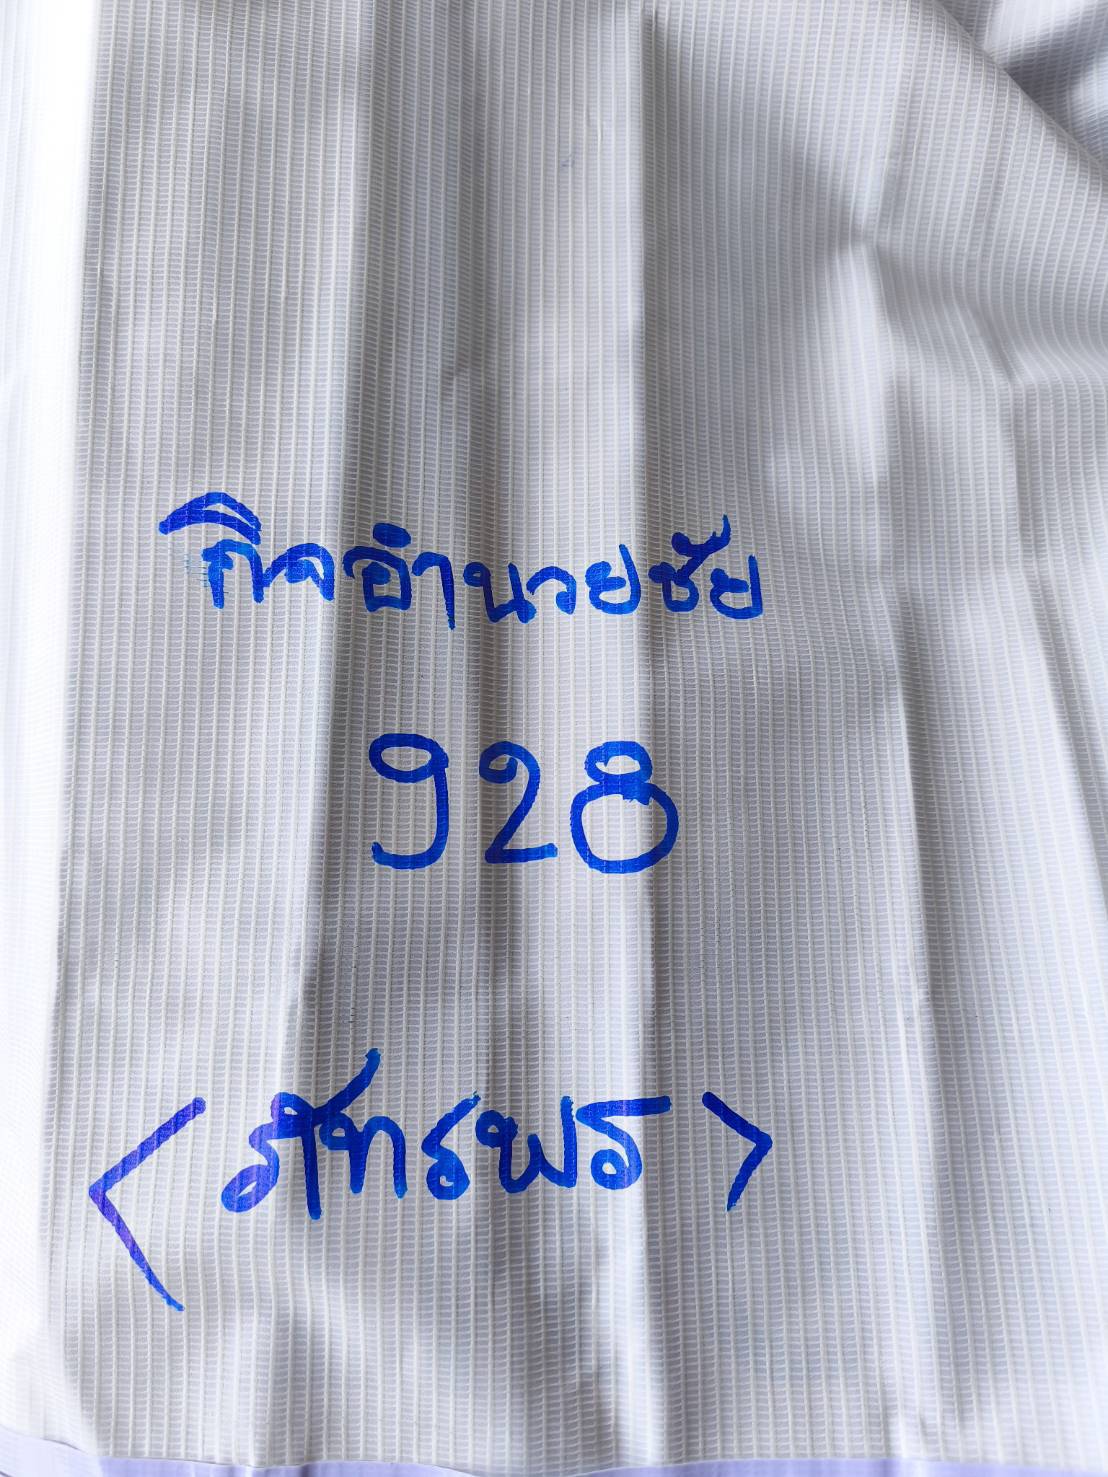 กิจอำนวยชัย
928
<สุทธพร>